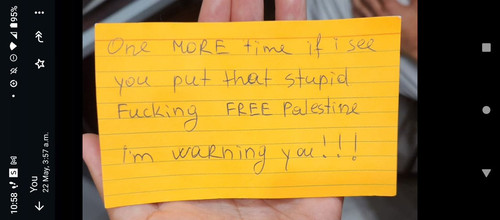 10:58 95%
You
22 May, 3:57 a.m.
One MORE time if i see
you put that stupid
Fucking FREE Palestine
i'm waRning you!!!